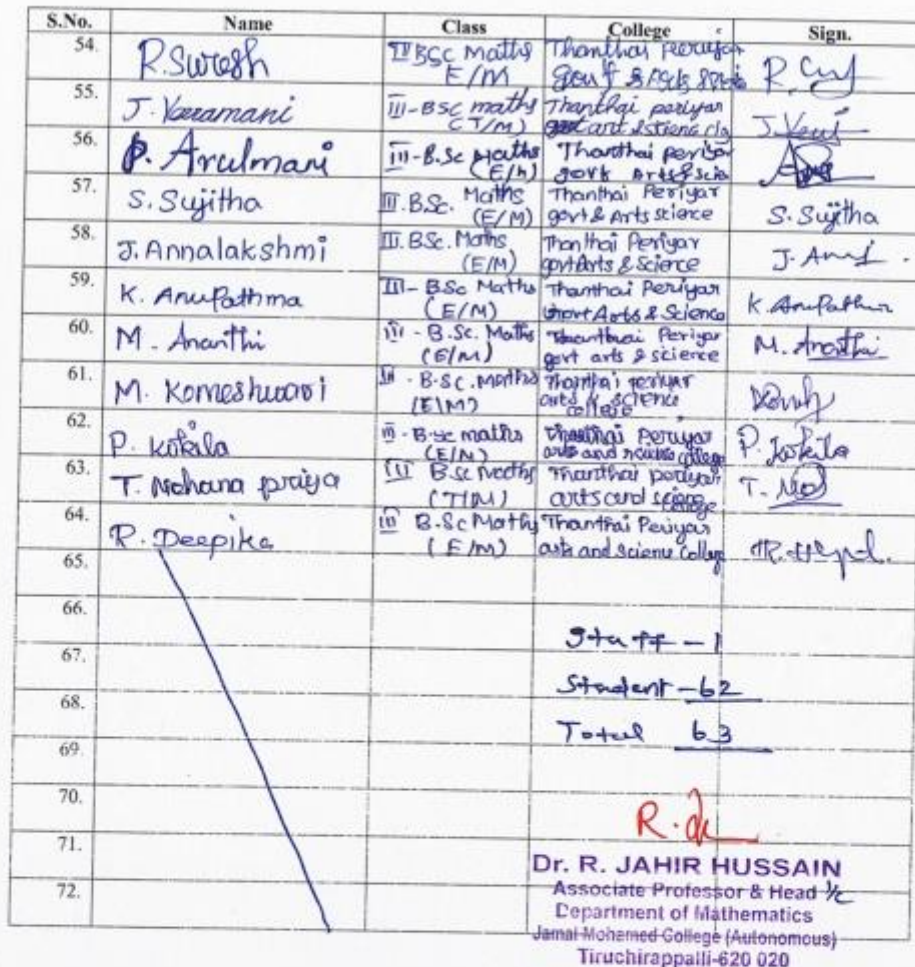 S.No. Name Class College Sign.
54. R. Suresh III BSC Maths E/M Thanthai periyar
55. J. Veeramani III-BSc maths (T/M) Thanthai periyar
56. P. Arulmani III-B.Sc Maths (E/M) Thanthai periyar govt Arts & Scie
57. S. Sujitha III.BSc. Maths (E/M) Thanthai Periyar govt & Arts science S. Sujitha
58. J. Annalakshmi III.BSc. Maths (E/M) Thanthai Periyar govt Arts & Science
59. K. Anupathma III-BSc Maths (E/M) Thanthai Periyar Govt Arts & Science K. Anupathma
60. M. Ananthi III-B.Sc. Maths (E/M) Thanthai Periyar govt arts & science M. Ananthi
61. M. Komeshwari III-B.Sc. Maths (E/M) Thanthai periyar arts & science college
62. P. Kokila III-B.Sc maths (E/M) Thanthai Periyar arts and science college P. Kokila
63. T. Mohana priya III B.Sc Maths (T/M) Thanthai periyar arts and science college
64. R. Deepika III B.Sc Maths (E/M) Thanthai Periyar arts and Science College
65.
66.
Staff - 1
67.
Student - 62
68.
Total 63
69.
70.
71.
Dr. R. JAHIR HUSSAIN
72.
Associate Professor & Head i/c
Department of Mathematics
Jamal Mohamed College (Autonomous)
Tiruchirappalli-620 020